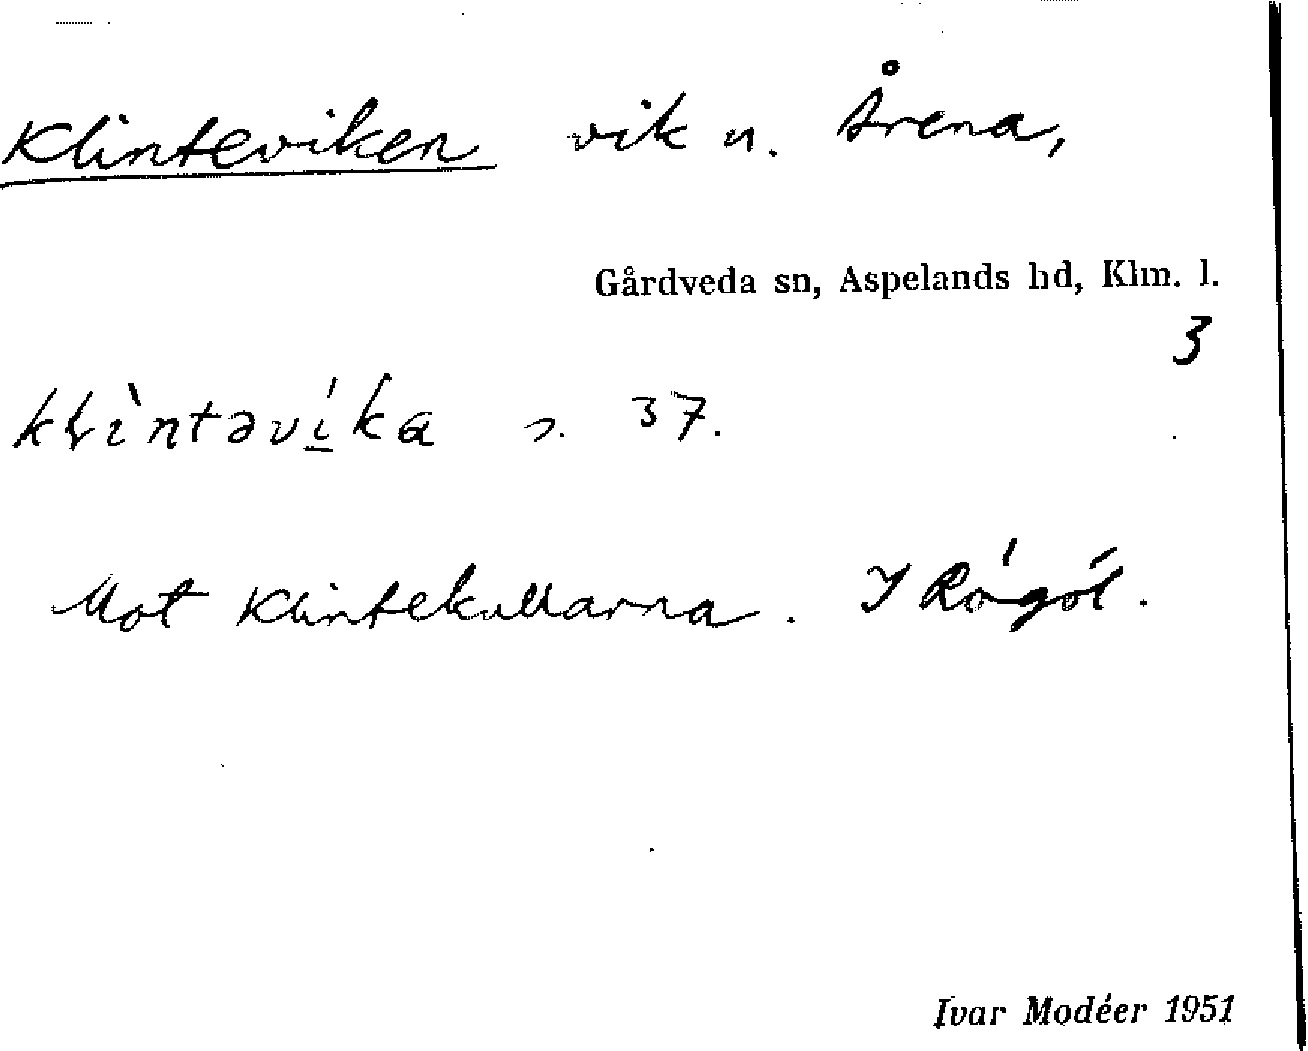 Klinteviken vik n. Årena,
Gårdveda sn, Aspelands hd, Klm. l.
3
klìntəví̲ka s. 37.
Mot Klintekullarna. I Rågöl.
Ivar Modéer 1951